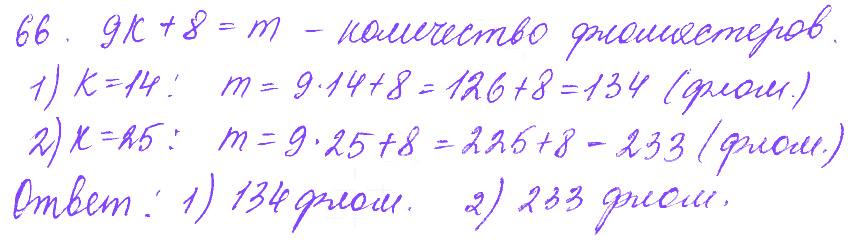 66. 9k + 8 = m – количество фломастеров.
1) k = 14: m = 9·14 + 8 = 126 + 8 = 134 (флом.)
2) k = 25: m = 9·25 + 8 = 225 + 8 – 233 (флом.)
Ответ: 1) 134 флом. 2) 233 флом.